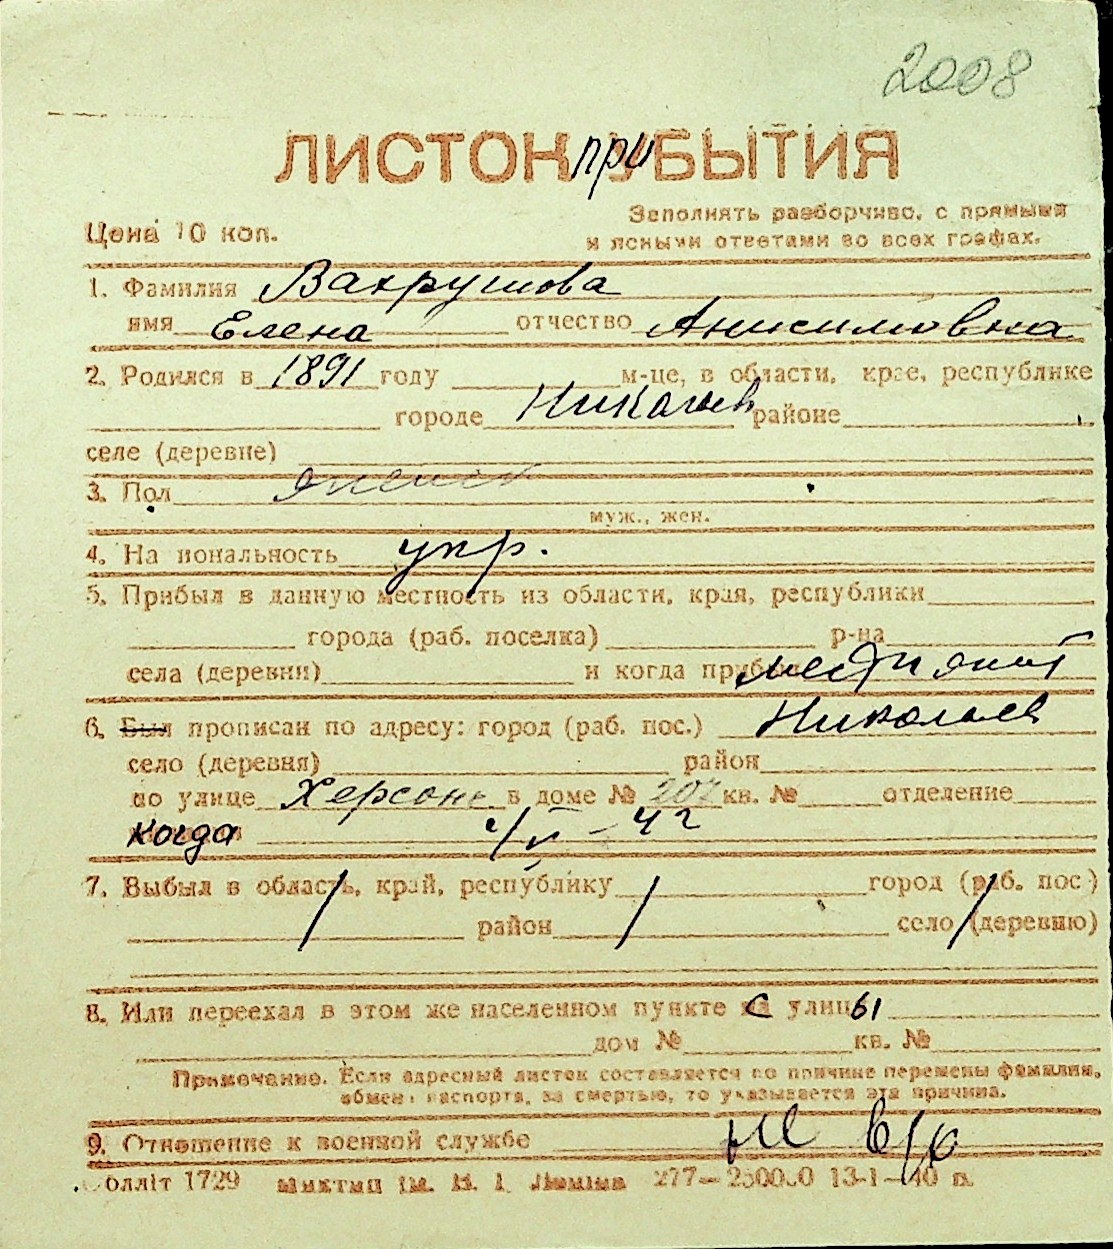 2008
ЛИСТОК ПРИБЫТИЯ
Цена 10 коп.
Заполнять разборчиво, с прямыми
и ясными ответами во всех графах.
1. Фамилия Вахрушова
имя Елена отчество Анисимовна
2. Родился в 1891 году м-це, в области, крае, республике
городе Николаев районе
селе (деревне)
3. Пол женск
муж., жен.
4. Национальность укр.
5. Прибыл в данную местность из области, края, республики
города (раб. поселка) р-на
села (деревни) и когда прибыл
6. Был прописан по адресу: город (раб. пос.) Николаев
село (деревня) район
по улице Херсонс в доме № 207 кв. № отделение
когда 4/V - 42
7. Выбыл в область, край, республику город (раб. пос)
район село (деревню)
8. Или переехал в этом же населенном пункте с улицы
дом № кв. №
Примечание. Если адресный листок составляется по причине перемены фамилия,
обмена паспорта, за смертью, то указывается эта причина.
9. Отношение к военной службе не в/о
Облліт 1729 277—250000 13-1—40 р.